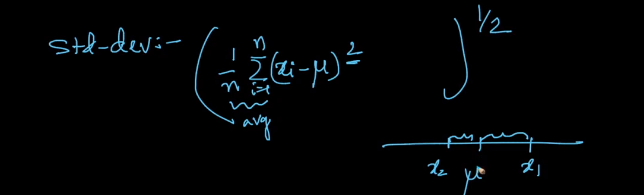 Std-dev:- ( 1/n Σ_{i=1}^{n} (xi - μ)^2 )^{1/2}
avg
x2 μ x1